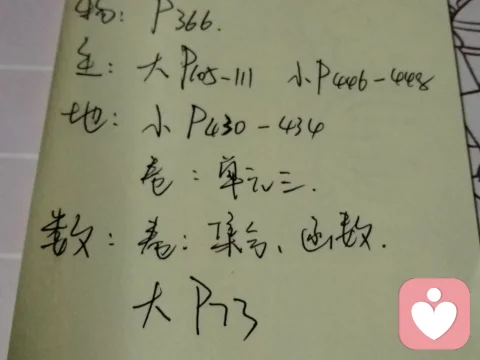 物: P366.
生: 大 P105-111 小 P446-448
地: 小 P430-434
卷: 单元三.
数: 卷: 集合、函数.
大 P73